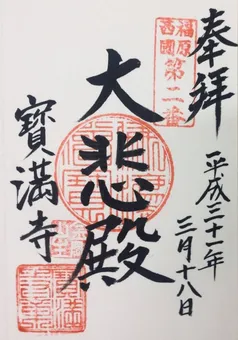 奉拜
平成三十一年
三月十八日
福原
西國
第二番
大悲殿
寳満寺